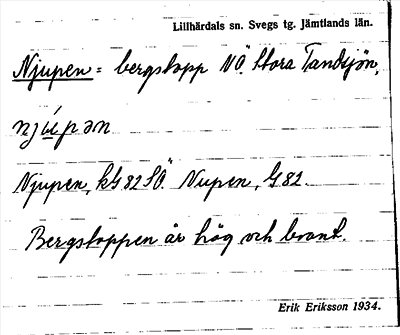 Lillhärdals sn. Svegs tg. Jämtlands län.
Njupen = bergstopp NÖ. Stora Tandsjön,
njúpən
Njupen, kG 82 SÖ. Nupen, G 82.
Bergstoppen är hög och brant.
Erik Eriksson 1934.